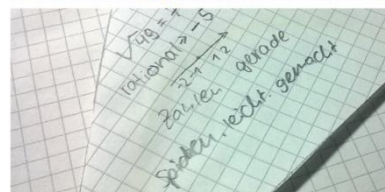 √49 = 7
rational → -5
-2 -1 1 2
Zahlen gerade
leicht gemacht